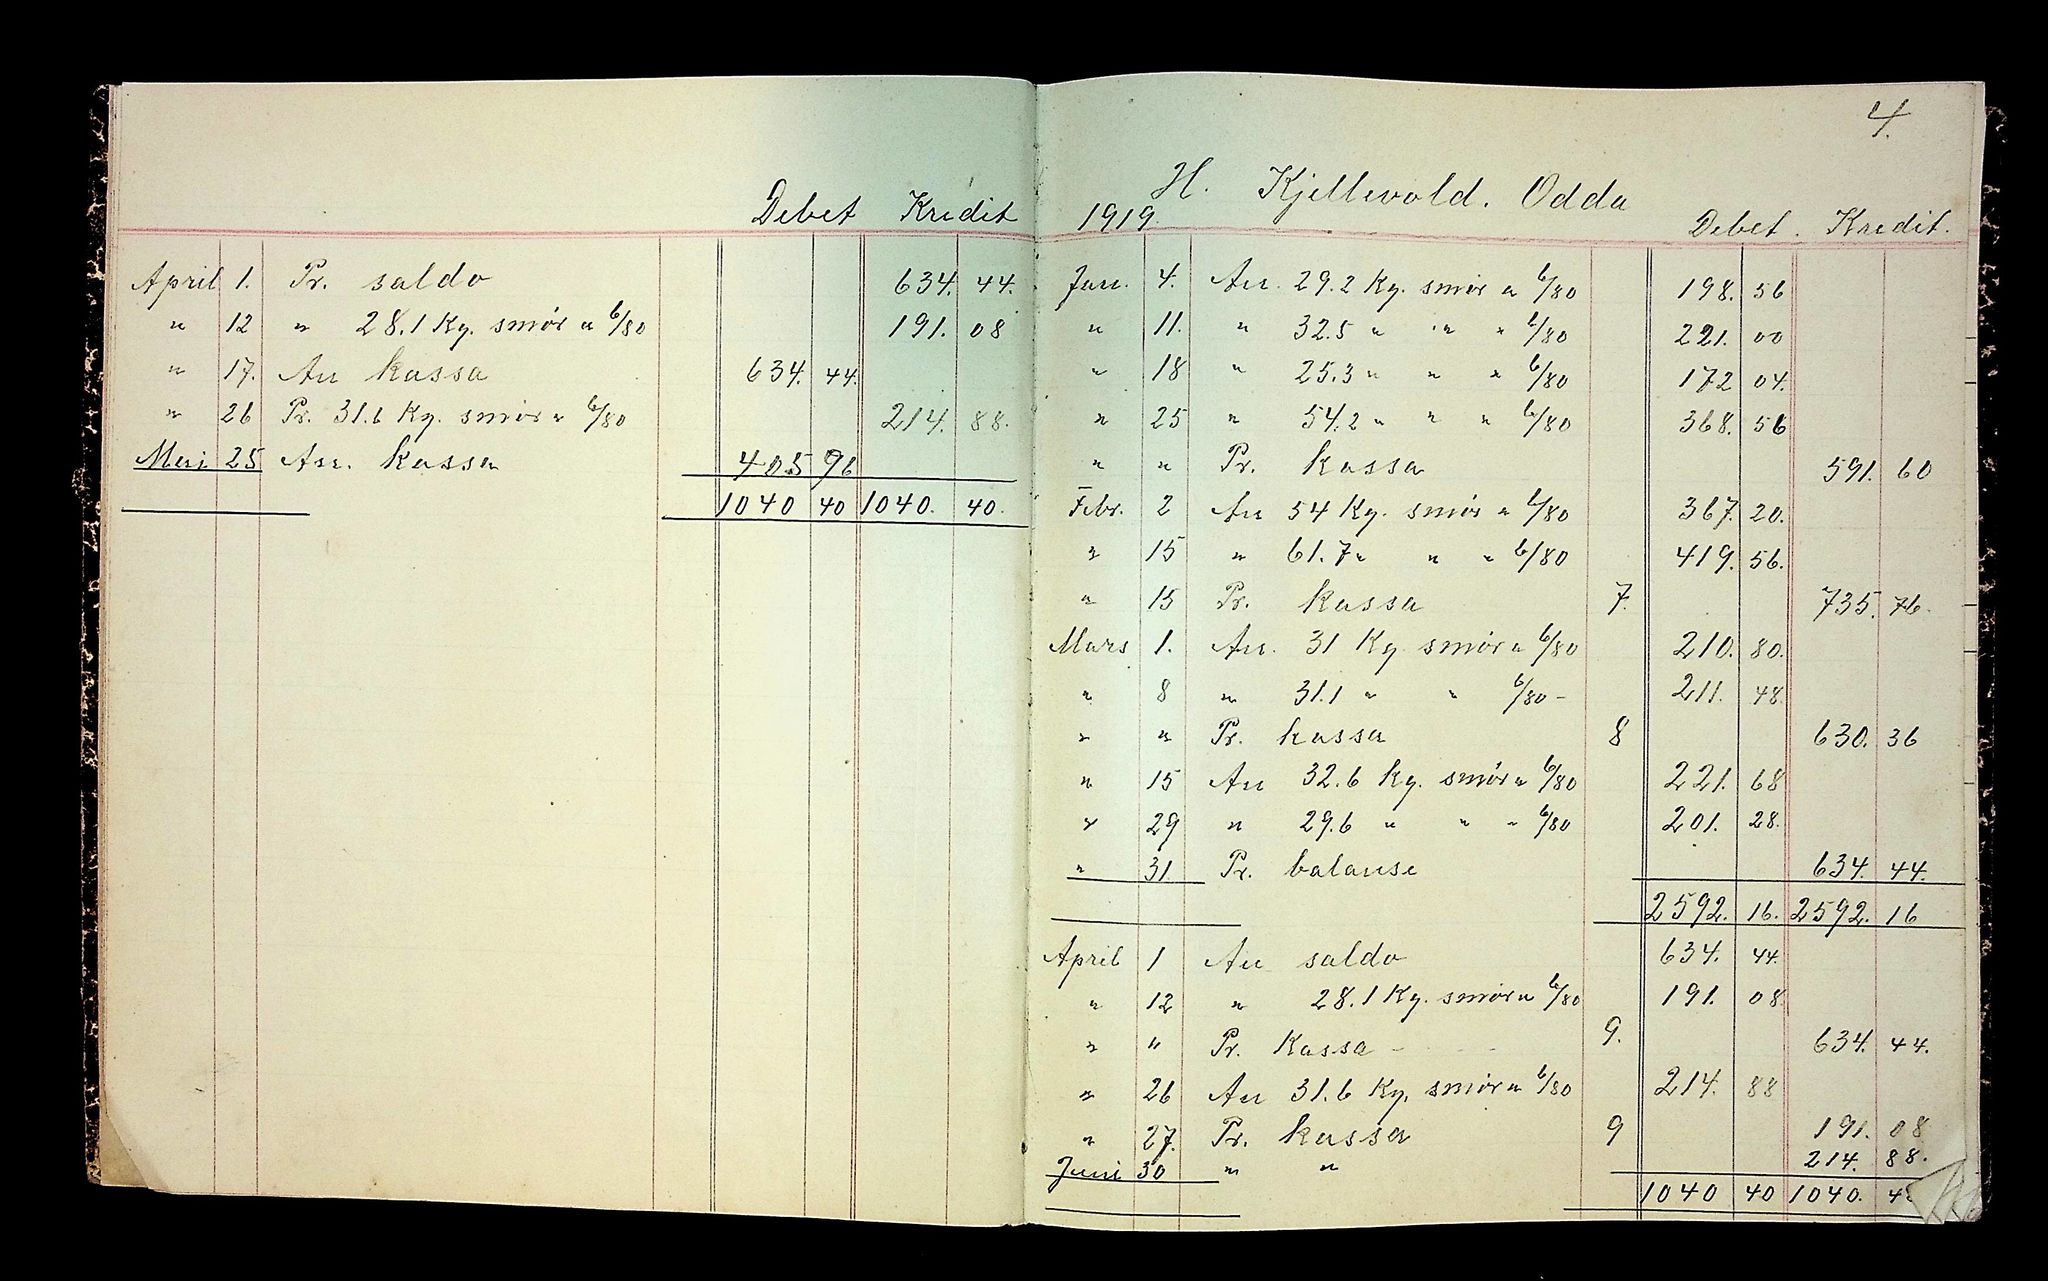 Debet Kredit
April 1. Pr. saldo 634. 44.
" 12 " 28.1 Kg. smør a 6/80 191. 08
" 17. An kassa 634. 44.
" 26 Pr. 31.6 Kg. smør a 6/80 214. 88.
Mai 25 An. kassa 405 96
1040 40 1040. 40.
4.
H. Kjellevold. Odda
1919. Debet. Kredit.
Jan. 4. An. 29.2 Kg. smør a 6/80 198. 56
" 11. " 32.5 " " " 6/80 221. 00
" 18 " 25.3 " " " 6/80 172 04.
" 25 " 54.2 " " " 6/80 368. 56
" " Pr. kassa 591. 60
Febr. 2 An 54 Kg. smør a 6/80 367. 20.
" 15 " 61.7 " " " 6/80 419. 56.
" 15 Pr. kassa 7. 735. 76.
Mars 1. An. 31 Kg. smør a 6/80 210. 80.
" 8 " 31.1 " " 6/80 - 211. 48.
" " Pr. kassa 8 630. 36
" 15 An 32.6 kg. smør a 6/80 221. 68
" 29 " 29.6 " " " 6/80 201. 28.
" 31. Pr. balanse 634. 44.
2592. 16. 2592. 16
April 1 An saldo 634. 44.
" 12 " 28.1 Kg. smør a 6/80 191. 08
" " Pr. Kassa - 9. 634. 44.
" 26 An 31.6 Kg. smør a 6/80 214. 88
" 27. Pr. kassa 9 191. 08
Juni 30 " " 214. 88.
1040 40 1040.